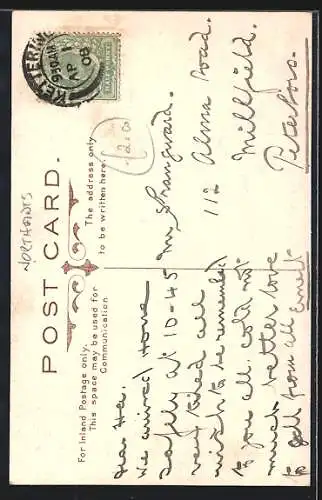 NORTHANTS
POST CARD.
For Inland Postage only.
This space may be used for
Communication
The address only
to be written here.
KETTERING
9 30 AM
AP 1
08
HALFPENNY
12.00
Dear
We arrived Home
safely at 10-45
very tired all
wish to be remembered
to you all, cold not
much better love
to all from all Ernest
Mr Stanguard.
112 Alma Road.
Millfield.
Peterboro.